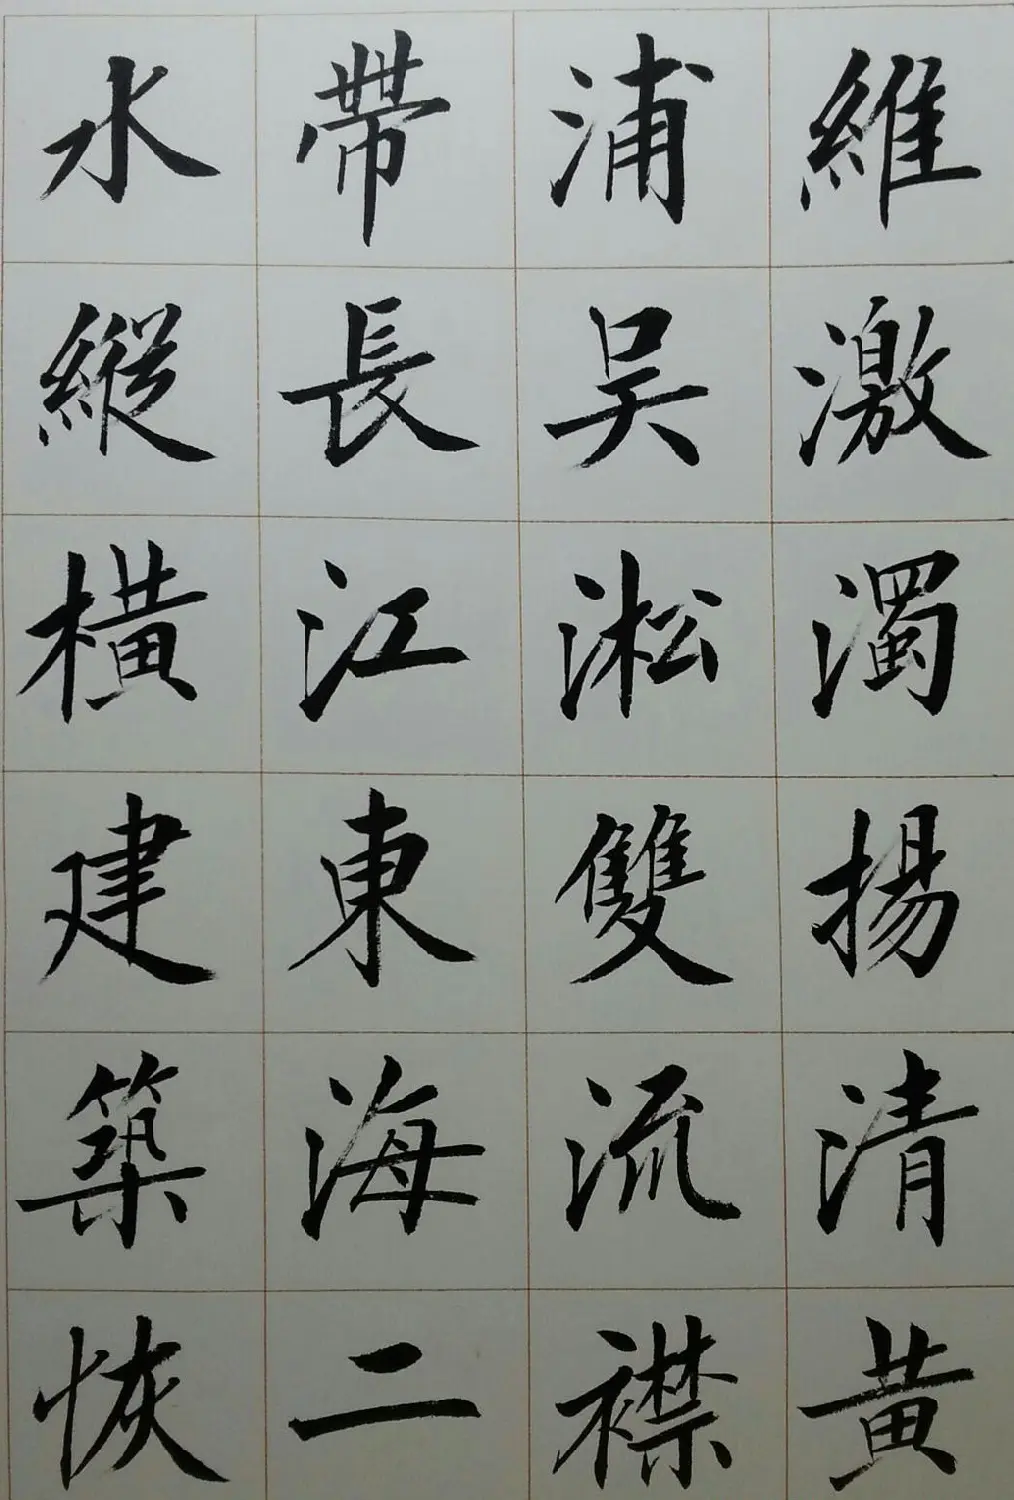 維激濁揚清黄
浦吴淞雙流襟
帶長江東海二
水縱橫建築恢